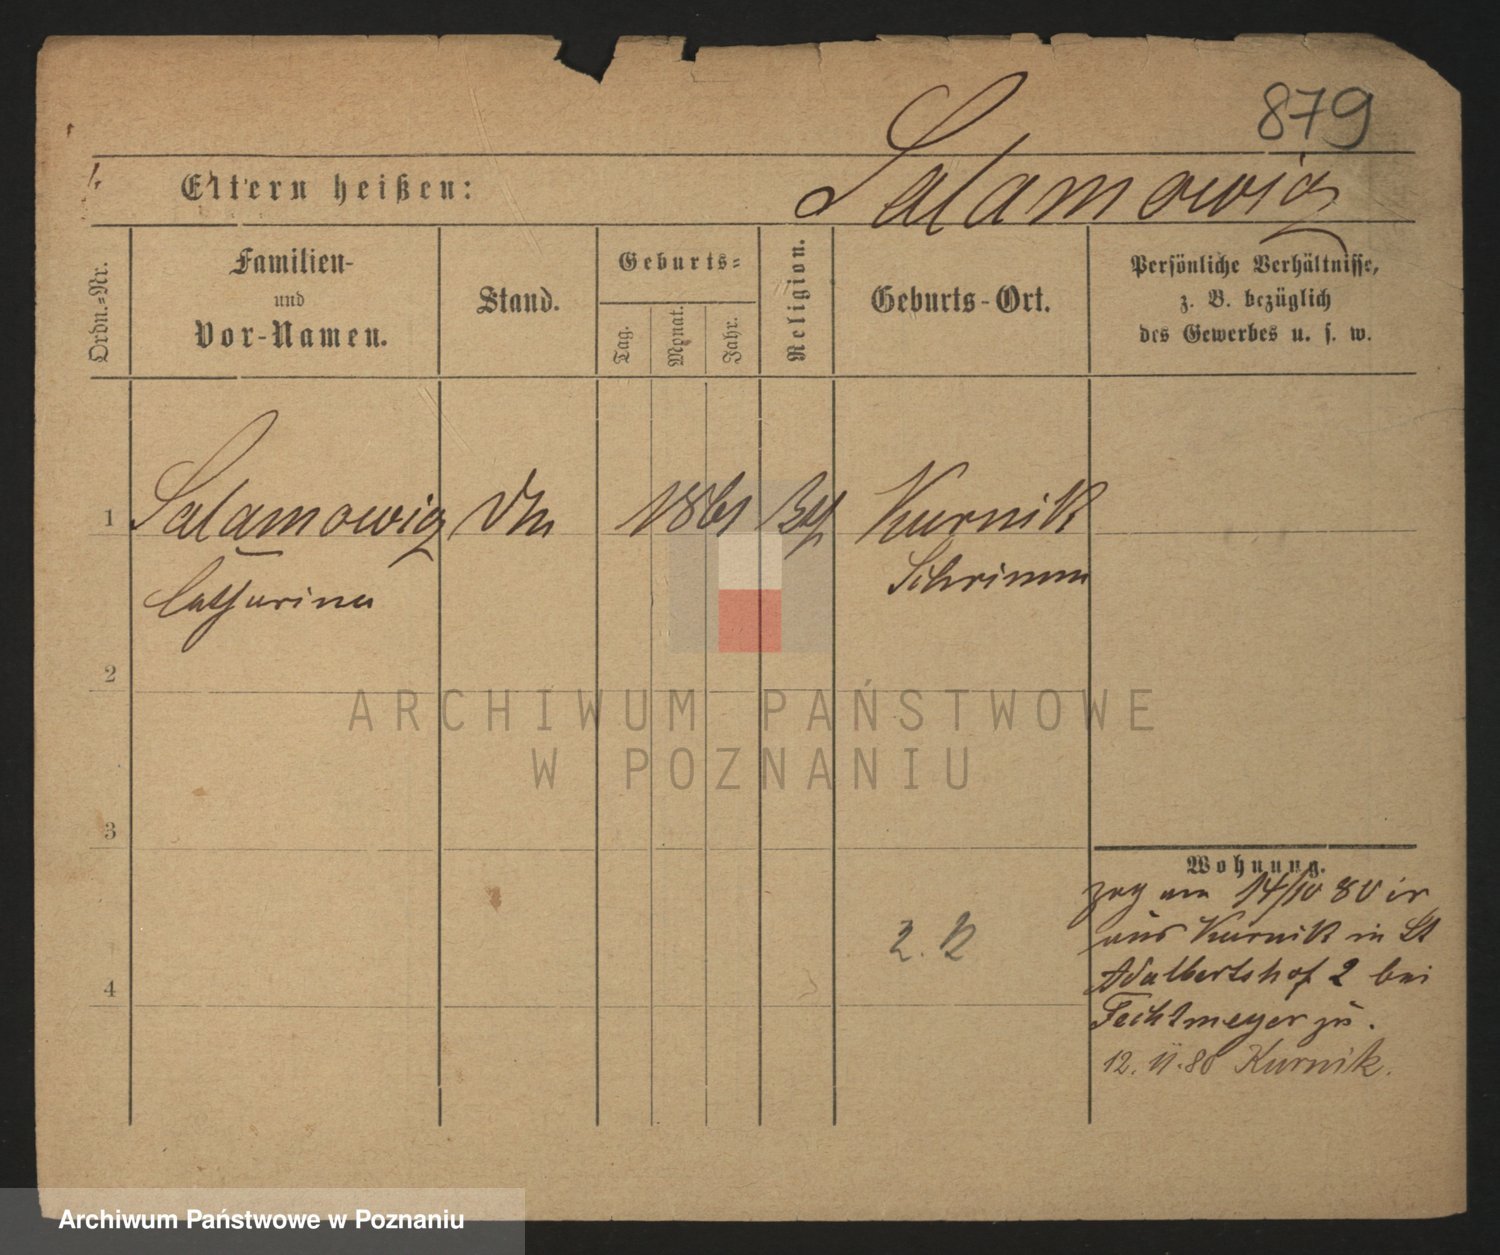 879
Eltern heißen: Salamowicz
Ordn.-Nr.
Familien-
und
Vor-Namen.
Stand.
Geburts-
Tag.
Monat.
Jahr.
Religion.
Geburts-Ort.
Persönliche Verhältnisse,
z. B. bezüglich
des Gewerbes u. s. w.
1 Salamowicz 1861 Kurnik
Catharina Schrimm
2
3
4
Wohnung.
zog am 14/10 80
aus Kurnik in St
Adalbertshof 2 bei
Fechtmeyer zu.
12. 11. 80 Kurnik.
ARCHIWUM PAŃSTWOWE
W POZNANIU
Archiwum Państwowe w Poznaniu